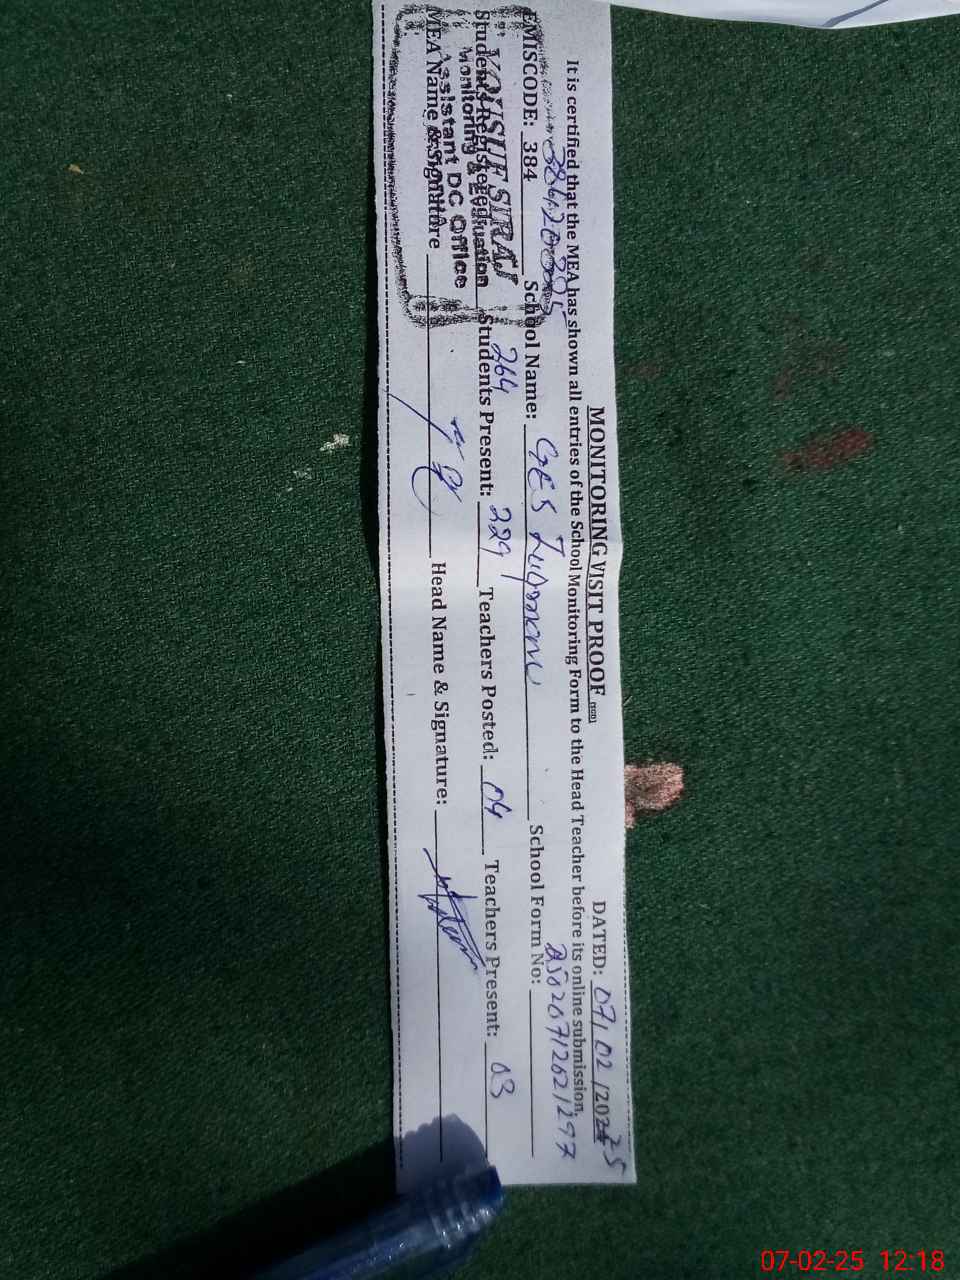 MONITORING VISIT PROOF DATED: 07/02/2025
It is certified that the MEA has shown all entries of the School Monitoring Form to the Head Teacher before its online submission.
EMISCODE: 384 School Name: GES School Form No:
Students Registered: 264 Students Present: 229 Teachers Posted: 04 Teachers Present: 03
MEA Name & Signature Head Name & Signature:
YOUSUF SIRAJ
Monitoring & Evaluation
Assistant DC Office
07-02-25 12:18